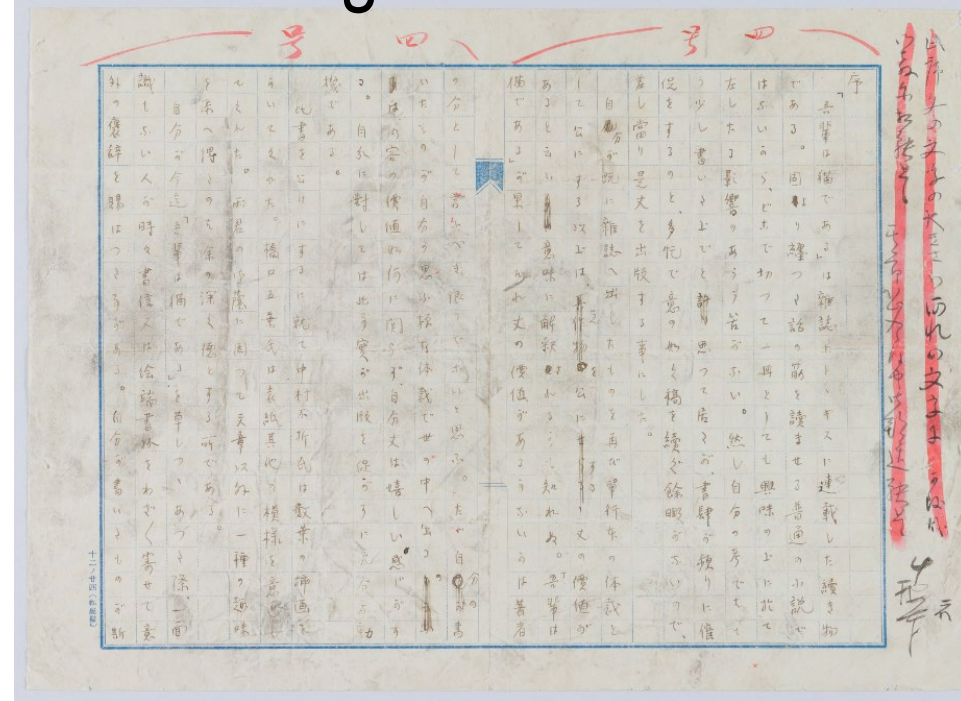 四号
四号
序
「吾輩は猫である」は雑誌ホトヽギスに連載した続き物
である。固より纏つた話の筋を読ませる普通の小説で
はないから、どこで切つて一冊としても興味の上に於て
左したる影響のあらう筈がない。然し自分の考ではも
う少し書いた上でと思つて居たが、書肆が頻りに催
促をするのと、多忙で意の如く稿を続ぐ餘暇がないので、
差し當り是丈を出版する事にした。
自分が既に雑誌へ出したものを再び単行本の体裁と
して公にする以上は、之を公にする丈の價値が
あると云ふ意味に解釈されるかも知れぬ。「吾輩は
猫である」が果してそれ丈の價値があるかないかは著者
の分として言ふべき限りでないと思ふ。たゞ自分の書
いたものが自分の思ふ様な体裁で世の中へ出るのは、
内容の價値如何に関らず、自分丈は嬉しい感じがす
る。自分に對しては此事実が出版を促がすに充分な動
機である。
此書を公けにするに就て中村不折氏は数葉の挿画を
かいてくれた。橋口五葉氏は表紙其他の模様を意匠し
てくれた。両君の御蔭に因つて文章以外に一種の趣味
を添へ得たるは余の深く徳とする所である。
自分が今迄「吾輩は猫である」を草しつゝあつた際、一面
識もない人が時々書信又は絵端書抔をわざ〱寄せて意
外の褒辞を賜はつた事がある。自分が書いたものが斯
十二ノ廿四(松屋製)